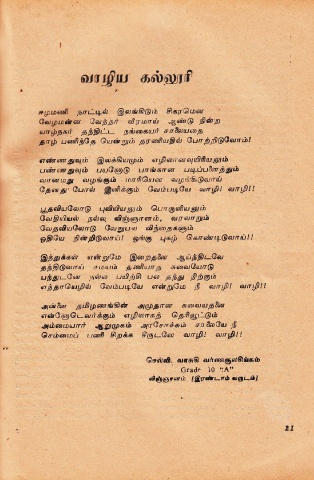 வாழிய கல்லூரி
ஈழமணி நாட்டில் இலங்கிடும் சிகரமென
வேழமன்ன வேந்தர் வீரமாய் ஆண்டு நின்ற
யாழ்நகர் தந்திட்ட நங்கையர் சாலையதை
தாழ் பணிந்தே யென்றும் தரணியதில் போற்றிடுவோம்!
எண்ணதுவும் இலக்கியமும் எழிலானவுயிரியலும்
பண்ணதுவும் பயனோடு பாங்கான படிப்பினைத்தும்
வானமது வழங்கும் மாரியென வழங்கிடுவாய்
தேனதுபோல் இனிக்கும் வேம்படியே வாழி! வாழி!!
பூதவியலோடு புவியியலும் பொருளியலும்
வேதியியல் நல்ல விஞ்ஞானம், வரலாறும்
வேதவியலோடு வேறுபல விந்தைகளும்
ஓதியே நின்றிடுவாய்! ஓங்கு புகழ் கொண்டிடுவாய்!!
இத்துக்கள் என்றுமே இறைதனை ஆய்ந்திடவே
தந்திடுவாய் சமயம் தணியாத சுவையோடு
பந்துடனே நல்ல பயிற்சி பல தந்து நிற்கும்
எந்தாயெழில் வேம்படியே என்றுமே நீ வாழி! வாழி!!
அன்னை தமிழணங்கின் அமுதான சுவையதனை
என்னோடெவர்க்கும் எழிலாகத் தெரிவூட்டும்
அம்மையார் ஆறுமுகம் அரசோச்சும் சாலையே நீ
செம்மைப் பணி சிறக்க நீரூடலே வாழி! வாழி!!
செல்வி. வாசுகி வர்ணகுலசிங்கம்
Grade 10 "A"
விஞ்ஞானம் (இரண்டாம் வருடம்)
21